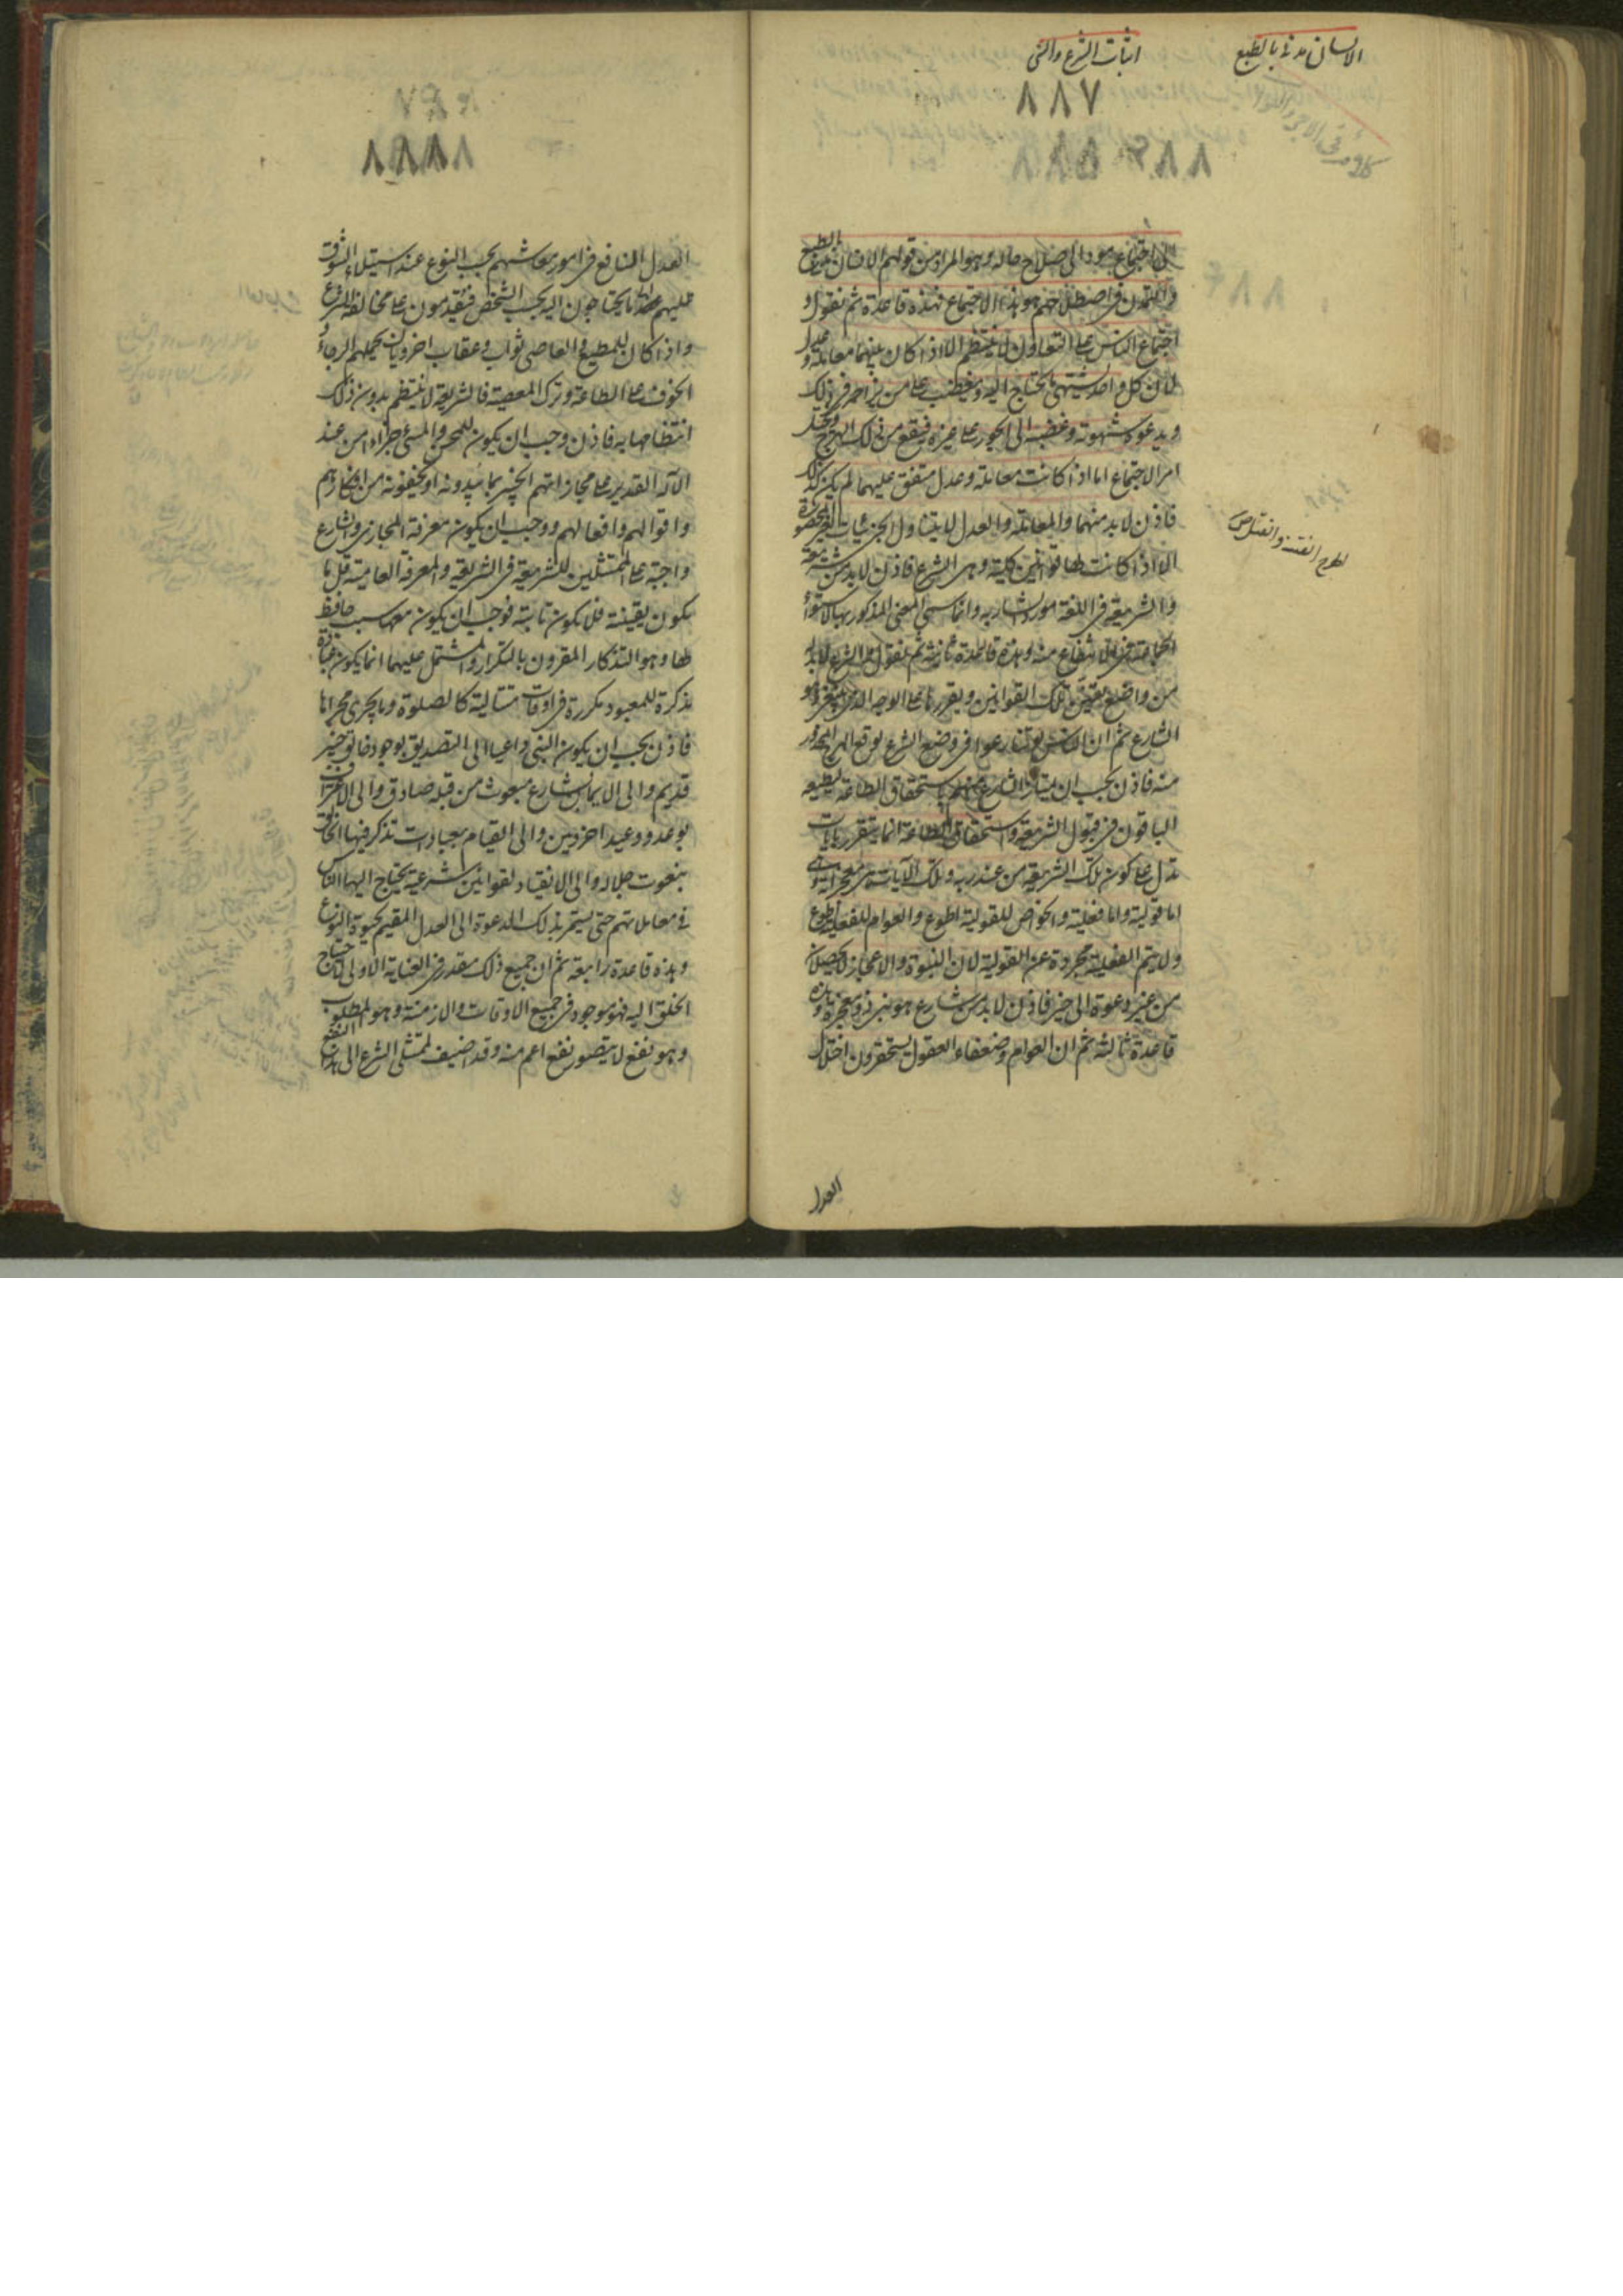 الانسان مدنى بالطبع
اثبات الشرع والنبى
٨٨٧
الى اجتماع يعود الى صلاح حاله وهو المراد من قولهم الانسان مدنى بالطبع
والتمدن فى اصطلاحهم هو هذا الاجتماع فهذه قاعدة ثم نقول و
اجتماع الناس على التعاون لا ينتظم الا اذا كان بينهم معاملة وعدل
لان كل واحد يشتهى ما يحتاج اليه ويغضب على من يزاحمه فى ذلك
ويدعوه شهوته وغضبه الى الجور على غيره فيقع من ذلك الهرج ويختل
امر الاجتماع اما اذا كانت معاملة وعدل متفق عليهما لم يكن كذلك
فاذن لا بد منهما والمعاملة والعدل لا يتناول الجزئيات الغير المحصورة
الا اذا كانت لها قوانين كلية وهى الشرع فاذن لا بد من شريعة
والشريعة فى اللغة مورد الشاربه وانما سمى المعنى المذكور بها لاستواء
الجماعة فى الانتفاع منه وهذه قاعدة ثانية ثم نقول الشرع لا بد له
من واضع يقنن تلك القوانين ويقررها على الوجه الذى ينبغى وهو
الشارع ثم ان الناس لو تنازعوا فى وضع الشرع لوقع الهرج المحذور
منه فاذن يجب ان يمتاز الشارع منهم باستحقاق الطاعة ليطيعه
الباقون فى قبول الشريعة واستحقاق الطاعة انما يتقرر بايات
تدل على كون تلك الشريعة من عند ربه وتلك الآيات هى معجزاته وهى
اما قولية واما فعلية والخواص للقولية اطوع والعوام للفعلية اطوع
ولا يتم الفعلية مجردة عن القولية لان النبوة والاعجاز لا يحصلان
من غير دعوة الى خير فاذن لا بد من شارع هو نبى ذو معجزة وهذه
قاعدة ثالثة ثم ان العوام وضعفاء العقول يستحقرون اختلال
العدل
٨٨٨
العدل النافع فى امور معاشهم بحسب النوع عند استيلاء الشوق
عليهم الى ما يحتاجون اليه بحسب الشخص فيقدمون على مخالفة الشرع
واذا كان للمطيع والعاصى ثواب وعقاب اخرويان يحملهم الرجاء و
الخوف على الطاعة وترك المعصية فالشريعة لا ينتظم بدون ذلك
انتظامها به فاذن وجب ان يكون للمحسن والمسئ جزاء من عند
الآله القدير على مجازاتهم الخبير بما يبدونه او يخفونه من افكارهم
واقوالهم وافعالهم ووجب ان يكون معرفة المجازى والشارع
واجبة على الممتثلين للشريعة فى الشريعة والمعرفة العامية قل ما
يكون يقينية فلا يكون ثابتة فوجب ان يكون معها سبب حافظ
لها وهو التذكار المقرون بالتكرار والمشتمل عليهما انما يكون عبادة
مذكرة للمعبود مكررة فى اوقات متتالية كالصلوة وما يجرى مجراها
فاذن يجب ان يكون النبى داعيا الى التصديق بوجود خالق خبير
قدير والى الايمان بشارع مبعوث من قبله صادق والى الاعتراف
بوعد ووعيد اخرويين والى القيام بعبادات تذكر فيها الخالق
بنعوت جلاله والى الانقياد لقوانين شرعية يحتاج اليها الناس
فى معاملاتهم حتى يستمر بذلك الدعوة الى العدل المقيم لحيوة النوع
وهذه قاعدة رابعة ثم ان جميع ذلك مقدر فى العناية الاولى لاحتياج
الخلق اليه فهو موجود فى جميع الاوقات والازمنة وهو المطلوب
وهو نفع لا يتصور نفع اعم منه وقد اضيف لممتثلى الشرع الى هذا النفع